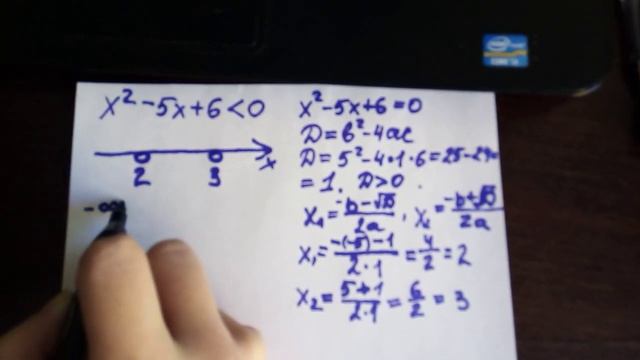 x² - 5x + 6 < 0
x
2 3
-∞
x² - 5x + 6 = 0
D = b² - 4ac
D = 5² - 4·1·6 = 25 - 24 =
= 1. D > 0.
x₁ = (-b - √D)/2a, x₂ = (-b + √D)/2a
x₁ = (-(-5) - 1)/(2·1) = 4/2 = 2
x₂ = (5 + 1)/(2·1) = 6/2 = 3
intel
CORE i5